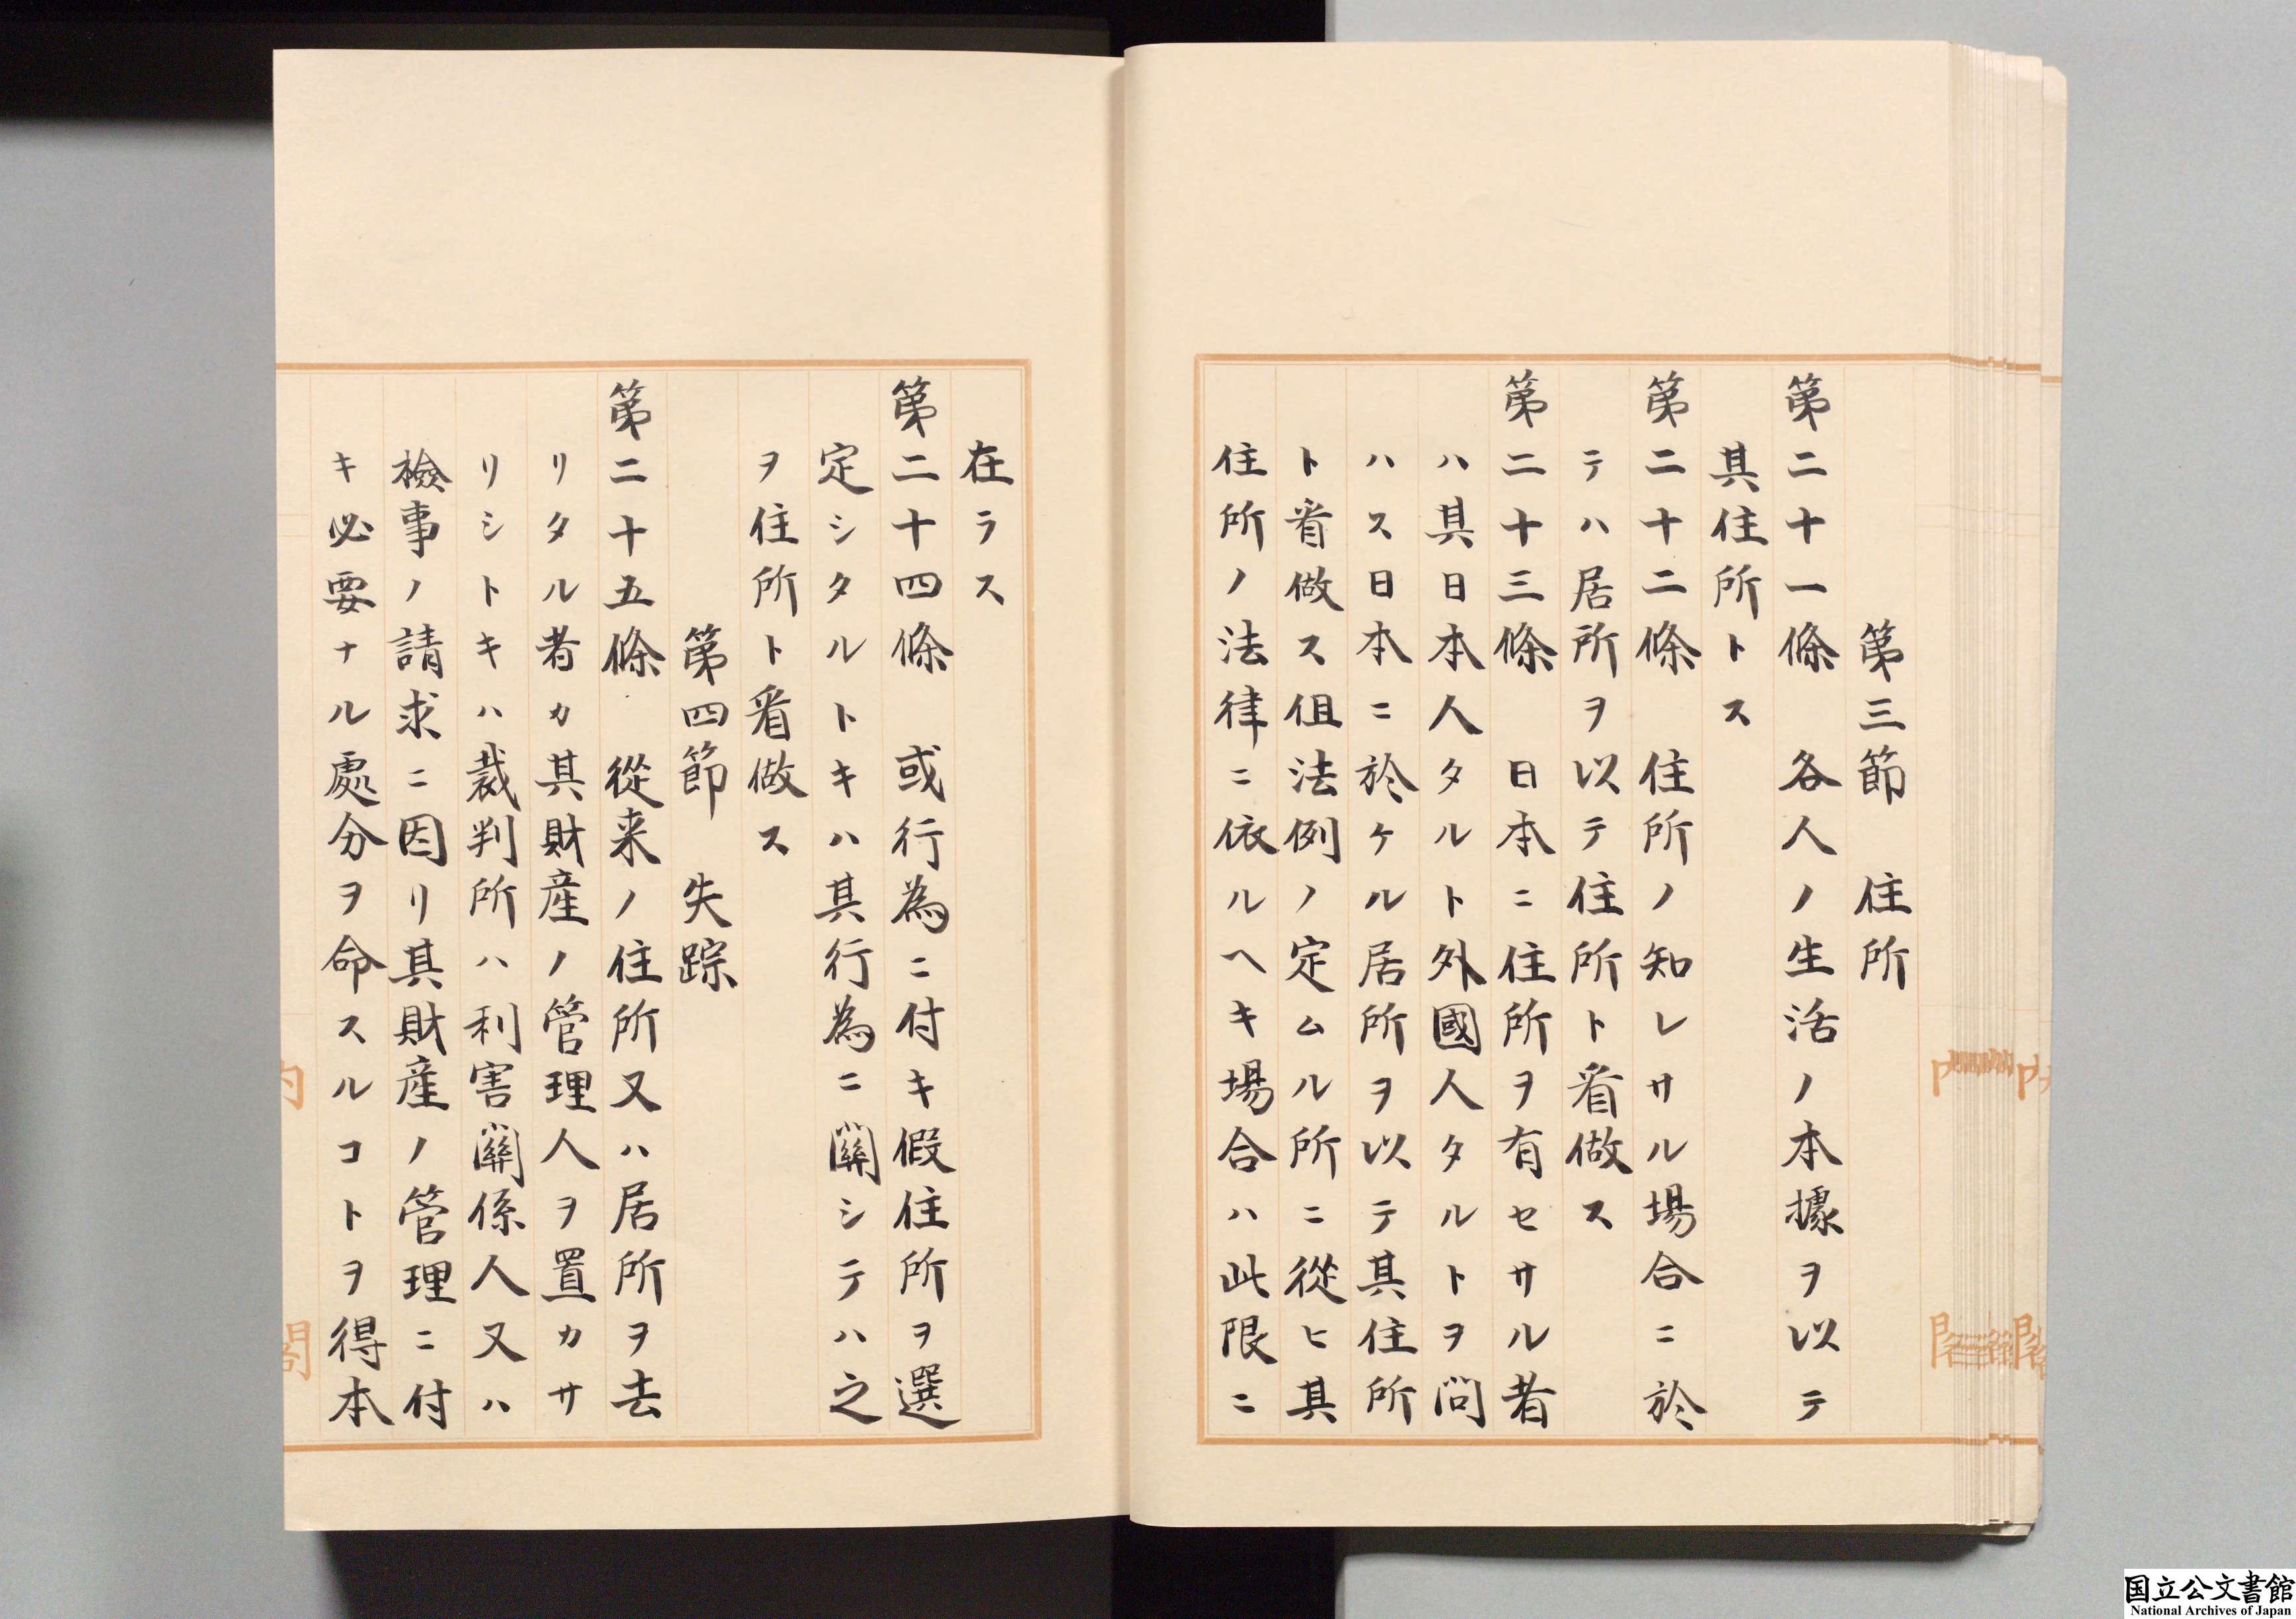 第三節　住所
第二十一條　各人ノ生活ノ本據ヲ以テ
其住所トス
第二十二條　住所ノ知レサル場合ニ於
テハ居所ヲ以テ住所ト看做ス
第二十三條　日本ニ住所ヲ有セサル者
ハ其日本人タルト外國人タルトヲ問
ハス日本ニ於ケル居所ヲ以テ其住所
ト看做ス但法例ノ定ムル所ニ從ヒ其
住所ノ法律ニ依ルヘキ場合ハ此限ニ
在ラス
第二十四條　或行為ニ付キ假住所ヲ選
定シタルトキハ其行為ニ關シテハ之
ヲ住所ト看做ス
第四節　失踪
第二十五條　從来ノ住所又ハ居所ヲ去
リタル者カ其財産ノ管理人ヲ置カサ
リシトキハ裁判所ハ利害關係人又ハ
檢事ノ請求ニ因リ其財産ノ管理ニ付
キ必要ナル處分ヲ命スルコトヲ得本
内閣
国立公文書館
National Archives of Japan